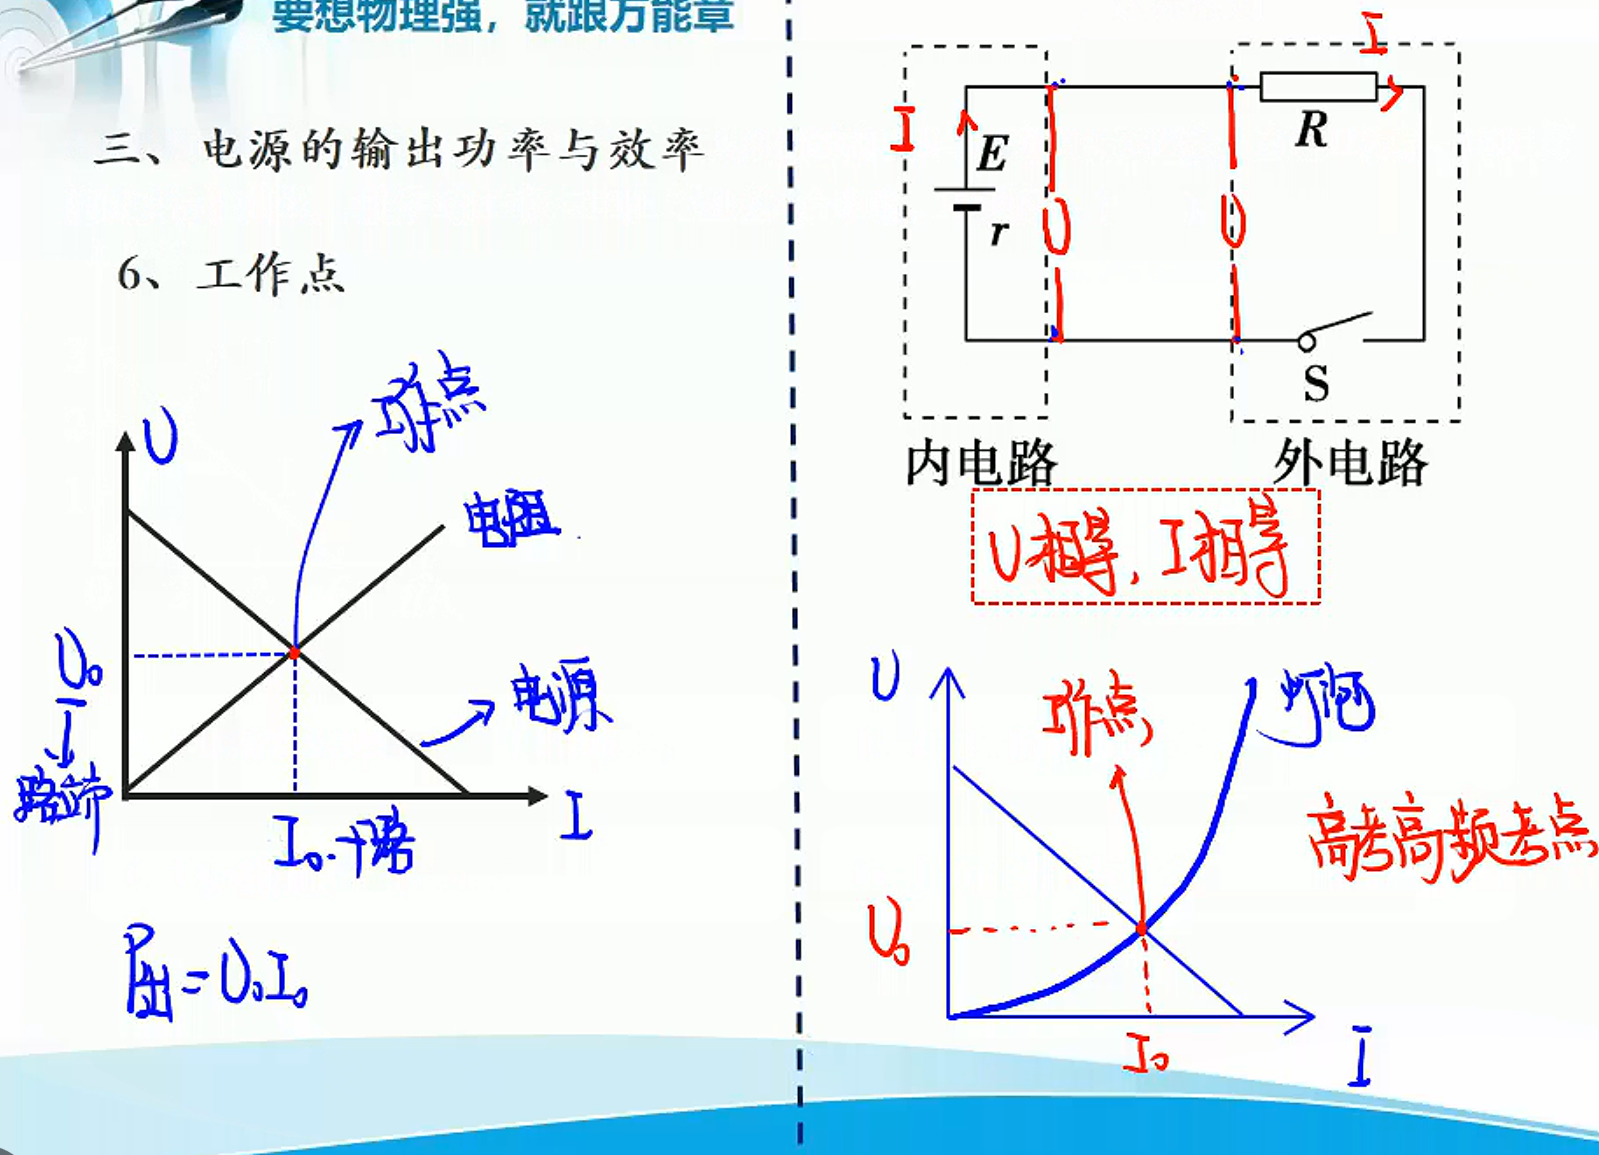 要想物理强，就跟万能章
三、电源的输出功率与效率
6、工作点
U
工作点
电阻
U₀
路端
电源
I₀.干路
I
P出=U₀I₀
I
I
E
r
U
U
R
S
内电路
外电路
U相等，I相等
U
工作点
灯泡
高考高频考点
U₀
I₀
I